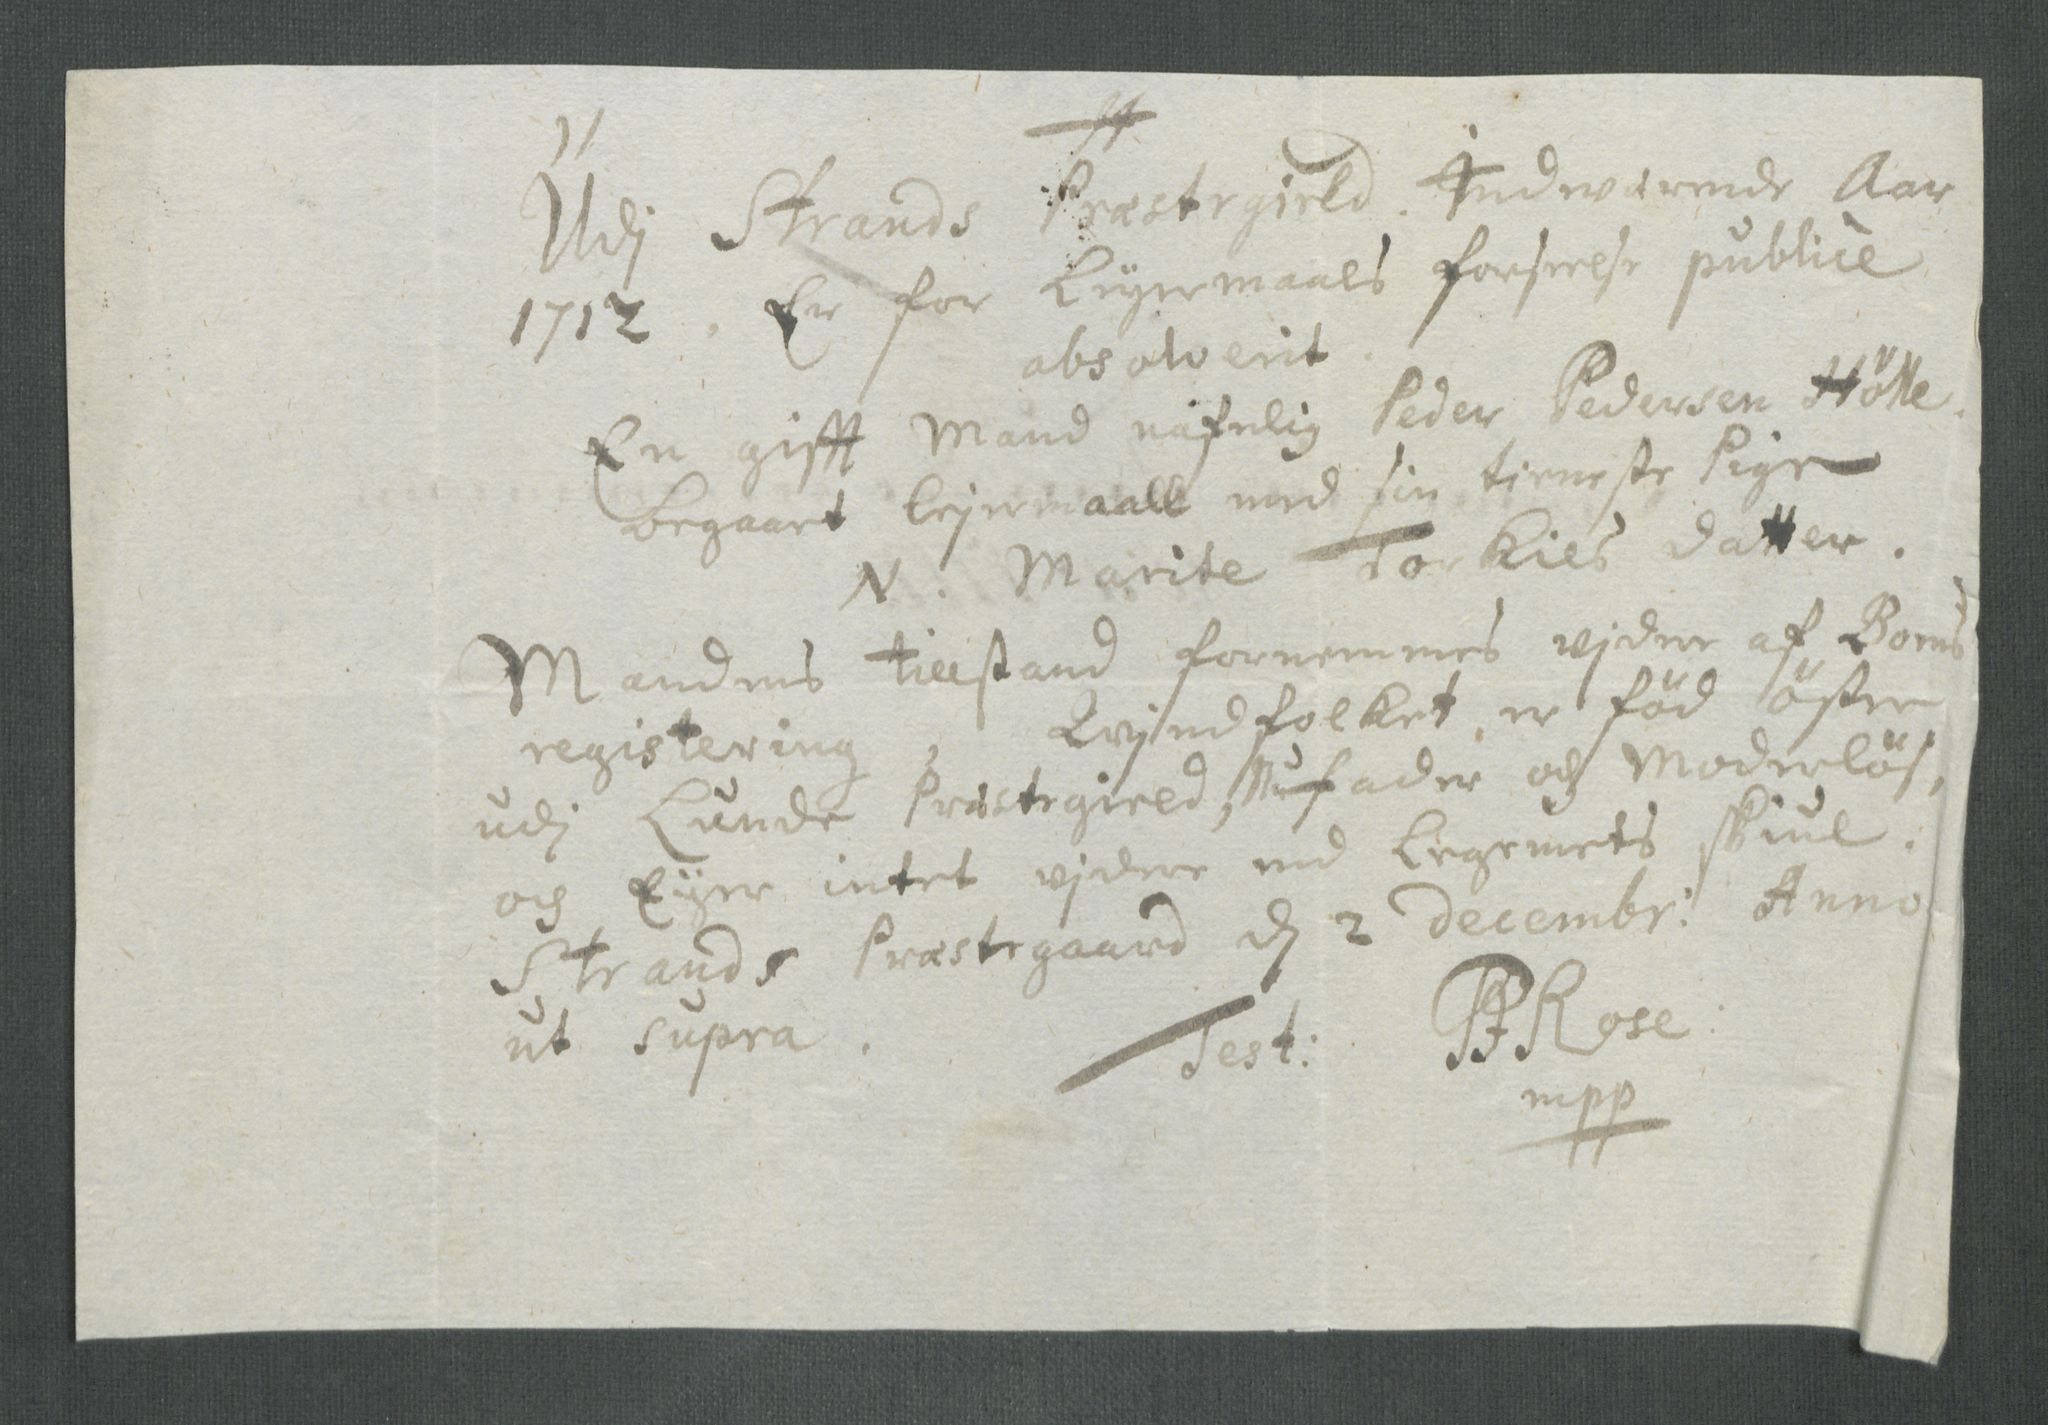 Udj Strands Præstegield. Indwærende Aar
1712. Er for Leÿermaals forseelse publicè
absolverit.
En gifft Mand nafnlig Peder Pedersen Hölle.
begaaet lejermaall med sin tieneste Pige
N. Marite Torkiels datter.
Mandens tillstand fornemmes vjdere af Boens
registering, Qvjndfolket er föd öster
udj Lunde Præstegield, fader och Moderlös,
och Eÿer intet vjdere end legemets skiul.
Strands Præstegaard dj 2 decembr: Anno
ut supra. Test: Rose
mpp